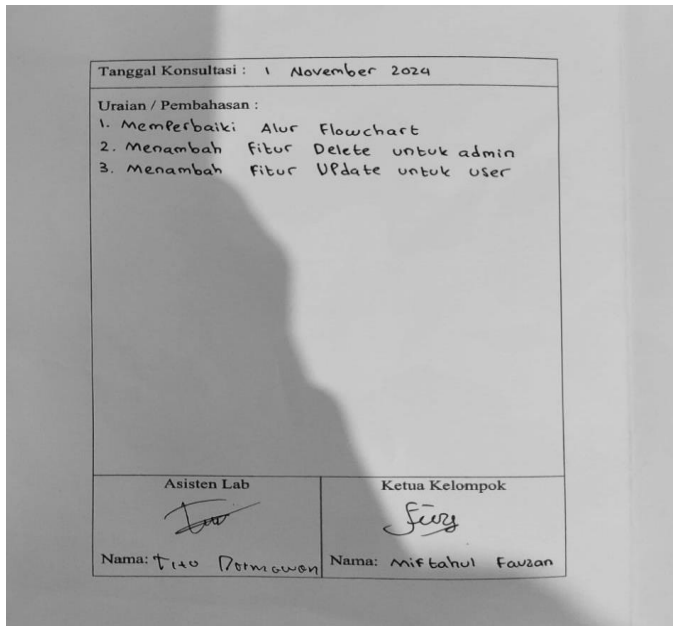 Tanggal Konsultasi : 1 November 2024
Uraian / Pembahasan :
1. Memperbaiki Alur Flowchart
2. Menambah Fitur Delete untuk admin
3. Menambah Fitur Update untuk user
Asisten Lab
Ketua Kelompok
Nama: Tito Darmawan
Nama: Miftahul Fauzan